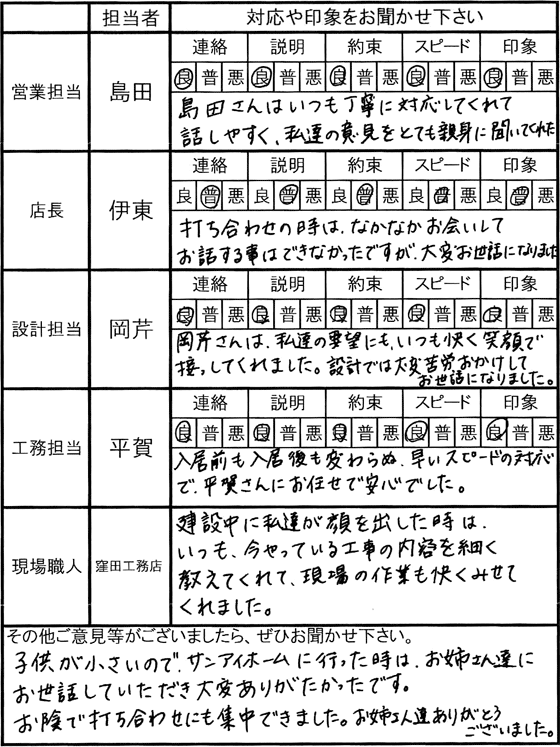 担当者 対応や印象をお聞かせ下さい
営業担当 島田
連絡 説明 約束 スピード 印象
良 普 悪 良 普 悪 良 普 悪 良 普 悪 良 普 悪
島田さんはいつも丁寧に対応してくれて
話しやすく、私達の意見をとても親身に聞いてくれた
店長 伊東
連絡 説明 約束 スピード 印象
良 普 悪 良 普 悪 良 普 悪 良 普 悪 良 普 悪
打ち合わせの時は、なかなかお会いして
お話する事はできなかったですが、大変お世話になりました
設計担当 岡芹
連絡 説明 約束 スピード 印象
良 普 悪 良 普 悪 良 普 悪 良 普 悪 良 普 悪
岡芹さんは、私達の要望にも、いつも快く笑顔で
接っしてくれました。設計では大変苦労おかけして
お世話になりました。
工務担当 平賀
連絡 説明 約束 スピード 印象
良 普 悪 良 普 悪 良 普 悪 良 普 悪 良 普 悪
入居前も入居後も変わらぬ、早いスピードの対応
で、平賀さんにお任せで安心でした。
現場職人 窪田工務店
建設中に私達が顔を出した時は、
いつも、今やっている工事の内容を細く
教えてくれて、現場の作業も快くみせて
くれました。
その他ご意見等がございましたら、ぜひお聞かせ下さい。
子供が小さいので、サンアイホームに行った時は、お姉さん達に
お世話していただき大変ありがたかったです。
お陰で打ち合わせにも集中できました。お姉さん達ありがとう
ございました。